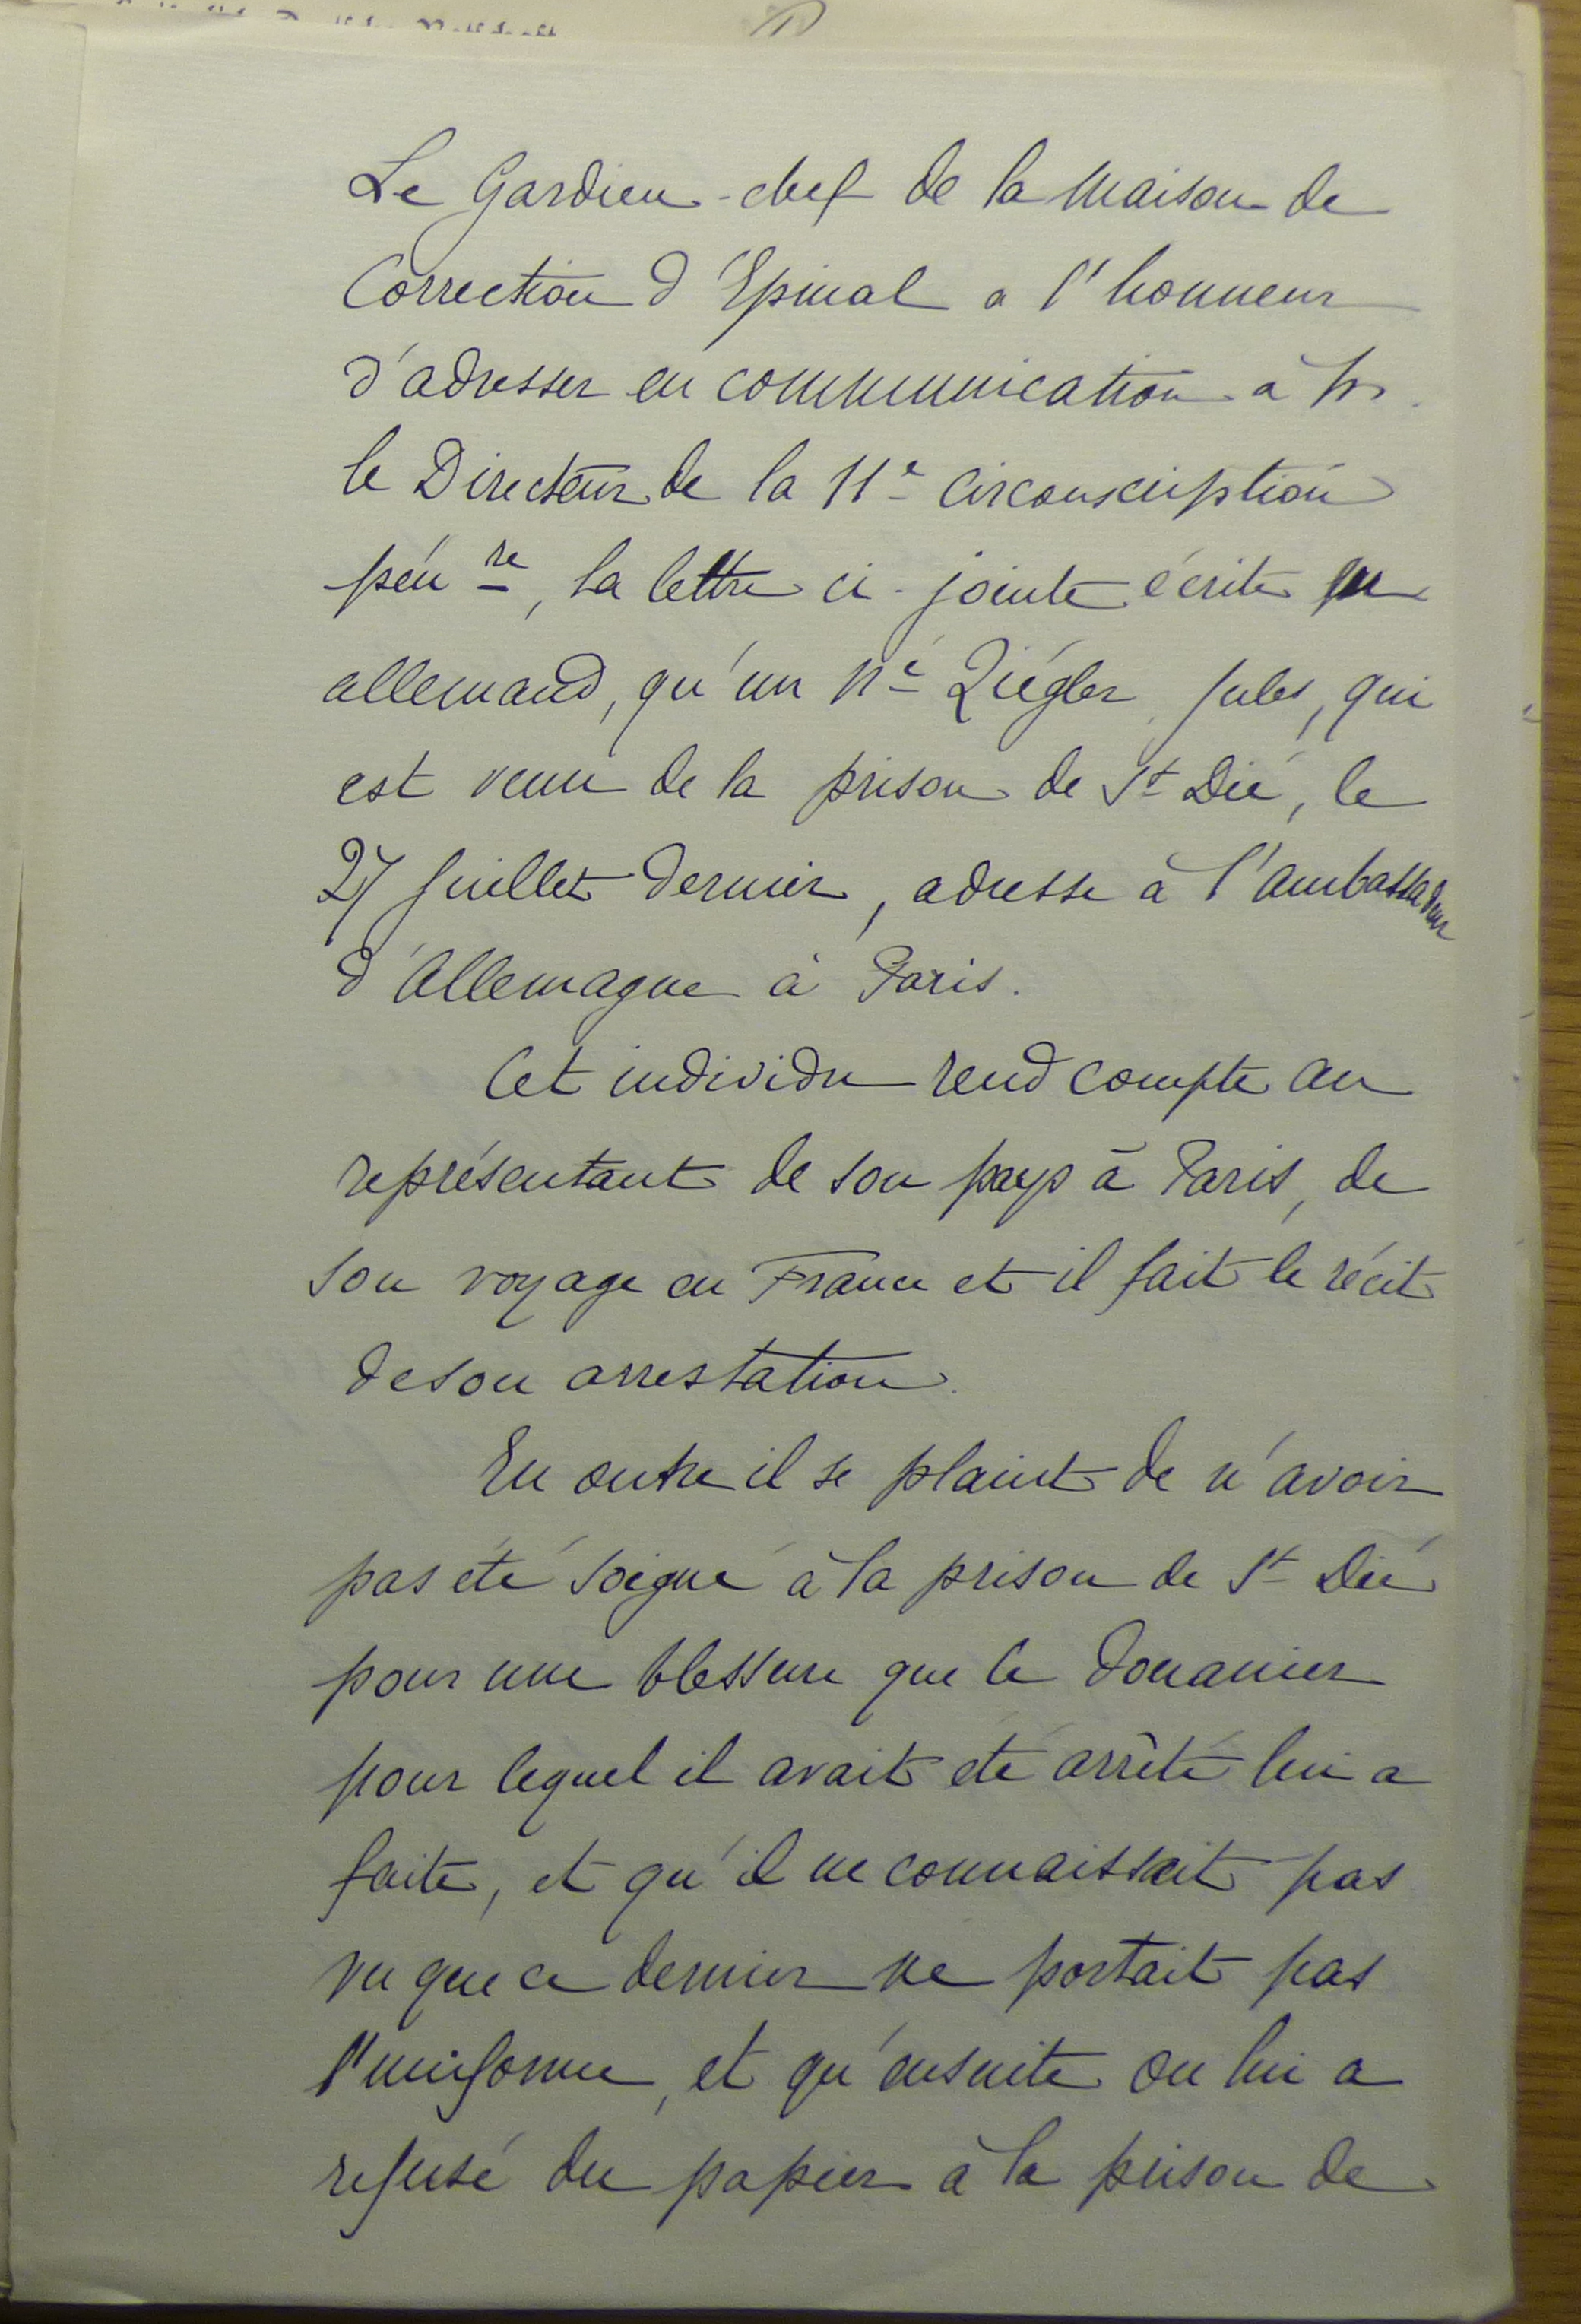 Le Gardien-chef de la Maison de
Correction d'Epinal a l'honneur
d'adresser en communication à M.
le Directeur de la 11e circonscription
pénre, la lettre ci-jointe écrite en
allemand, qu'un né Ziégler, Jules, qui
est venu de la prison de St Dié, le
27 Juillet dernier, adresse à l'ambassadeur
d'Allemagne à Paris.
Cet individu rend compte au
représentant de son pays à Paris, de
son voyage en France et il fait le récit
de son arrestation.
En outre il se plaint de n'avoir
pas été soigné à la prison de St Dié
pour une blessure que le douanier
pour lequel il avait été arrêté lui a
faite, et qu'il ne connaissait pas
vu que ce dernier ne portait pas
l'uniforme, et qu'ensuite on lui a
refusé du papier à la prison de